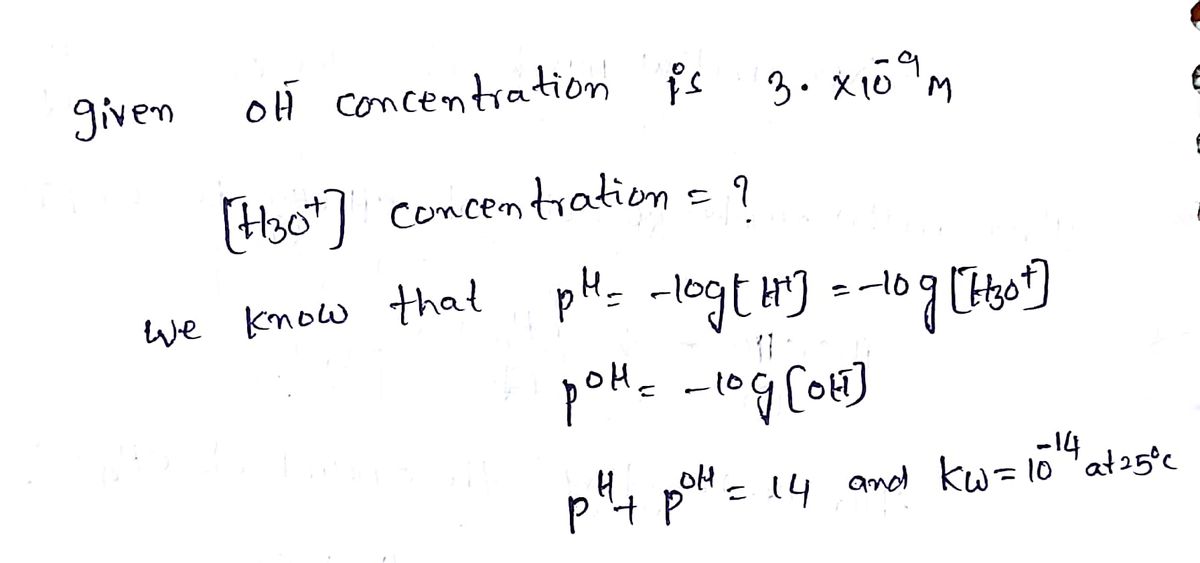 given OH⁻ concentration is 3. ×10⁻⁹ M
[H₃O⁺] concentration = ?
We know that pH = -log[H⁺] = -log[H₃O⁺]
pOH = -log[OH⁻]
pH + pOH = 14 and kw = 10⁻¹⁴ at 25°C